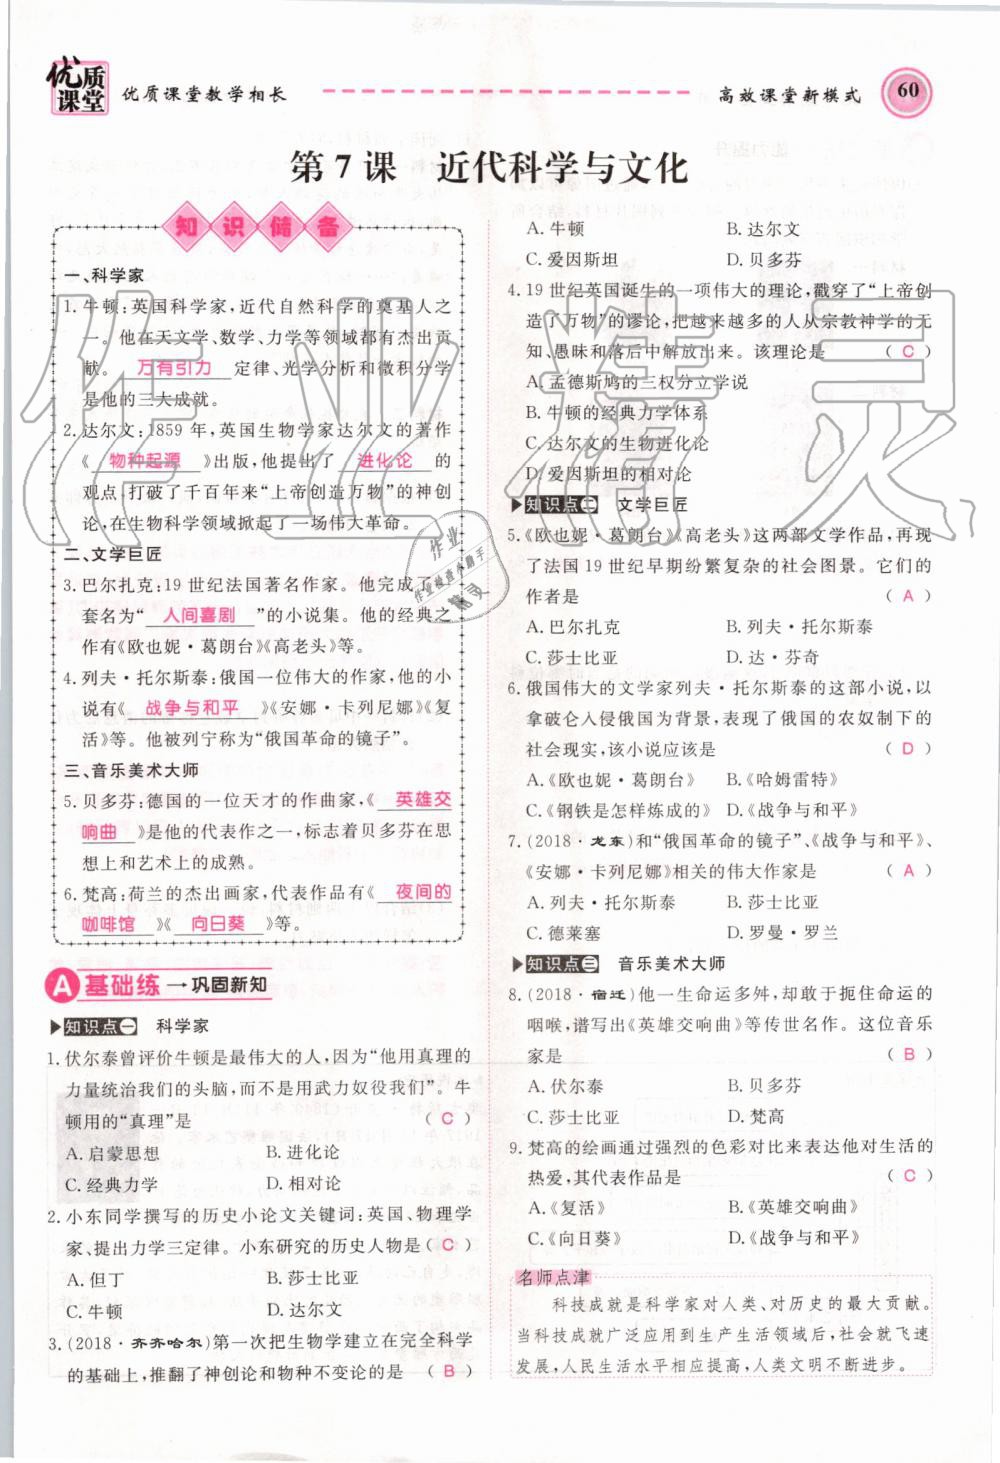 优质课堂
优质课堂教学相长
高效课堂新模式
60
第7课 近代科学与文化
知识储备
一、科学家
1.牛顿:英国科学家,近代自然科学的奠基人之
一。他在天文学、数学、力学等领域都有杰出贡
献。万有引力定律、光学分析和微积分学
是他的三大成就。
2.达尔文:1859年,英国生物学家达尔文的著作
《物种起源》出版,他提出了进化论的
观点,打破了千百年来“上帝创造万物”的神创
论,在生物科学领域掀起了一场伟大革命。
二、文学巨匠
3.巴尔扎克:19世纪法国著名作家。他完成了一
套名为“人间喜剧”的小说集。他的经典之
作有《欧也妮·葛朗台》《高老头》等。
4.列夫·托尔斯泰:俄国一位伟大的作家,他的小
说有《战争与和平》《安娜·卡列尼娜》《复
活》等。他被列宁称为“俄国革命的镜子”。
三、音乐美术大师
5.贝多芬:德国的一位天才的作曲家,《英雄交
响曲》是他的代表作之一,标志着贝多芬在思
想上和艺术上的成熟。
6.梵高:荷兰的杰出画家,代表作品有《夜间的
咖啡馆》《向日葵》等。
A 基础练 →巩固新知
知识点一 科学家
1.伏尔泰曾评价牛顿是最伟大的人,因为“他用真理的
力量统治我们的头脑,而不是用武力奴役我们”。牛
顿用的“真理”是 (C)
A.启蒙思想 B.进化论
C.经典力学 D.相对论
2.小东同学撰写的历史小论文关键词:英国、物理学
家、提出力学三定律。小东研究的历史人物是(C)
A.但丁 B.莎士比亚
C.牛顿 D.达尔文
3.(2018·齐齐哈尔)第一次把生物学建立在完全科学
的基础上,推翻了神创论和物种不变论的是 (B)
A.牛顿 B.达尔文
C.爱因斯坦 D.贝多芬
4.19世纪英国诞生的一项伟大的理论,戳穿了“上帝创
造了万物”的谬论,把越来越多的人从宗教神学的无
知、愚昧和落后中解放出来。该理论是 (C)
A.孟德斯鸠的三权分立学说
B.牛顿的经典力学体系
C.达尔文的生物进化论
D.爱因斯坦的相对论
知识点二 文学巨匠
5.《欧也妮·葛朗台》《高老头》这两部文学作品,再现
了法国19世纪早期纷繁复杂的社会图景。它们的
作者是 (A)
A.巴尔扎克 B.列夫·托尔斯泰
C.莎士比亚 D.达·芬奇
6.俄国伟大的文学家列夫·托尔斯泰的这部小说,以
拿破仑入侵俄国为背景,表现了俄国的农奴制下的
社会现实,该小说应该是 (D)
A.《欧也妮·葛朗台》 B.《哈姆雷特》
C.《钢铁是怎样炼成的》 D.《战争与和平》
7.(2018·龙东)和“俄国革命的镜子”、《战争与和平》、
《安娜·卡列尼娜》相关的伟大作家是 (A)
A.列夫·托尔斯泰 B.莎士比亚
C.德莱塞 D.罗曼·罗兰
知识点三 音乐美术大师
8.(2018·宿迁)他一生命运多舛,却敢于扼住命运的
咽喉,谱写出《英雄交响曲》等传世名作。这位音乐
家是 (B)
A.伏尔泰 B.贝多芬
C.莎士比亚 D.梵高
9.梵高的绘画通过强烈的色彩对比来表达他对生活的
热爱,其代表作品是 (C)
A.《复活》 B.《英雄交响曲》
C.《向日葵》 D.《战争与和平》
名师点津
科技成就是科学家对人类、对历史的最大贡献。
当科技成就广泛应用到生产生活领域后,社会就飞速
发展,人民生活水平相应提高,人类文明不断进步。
作业精灵